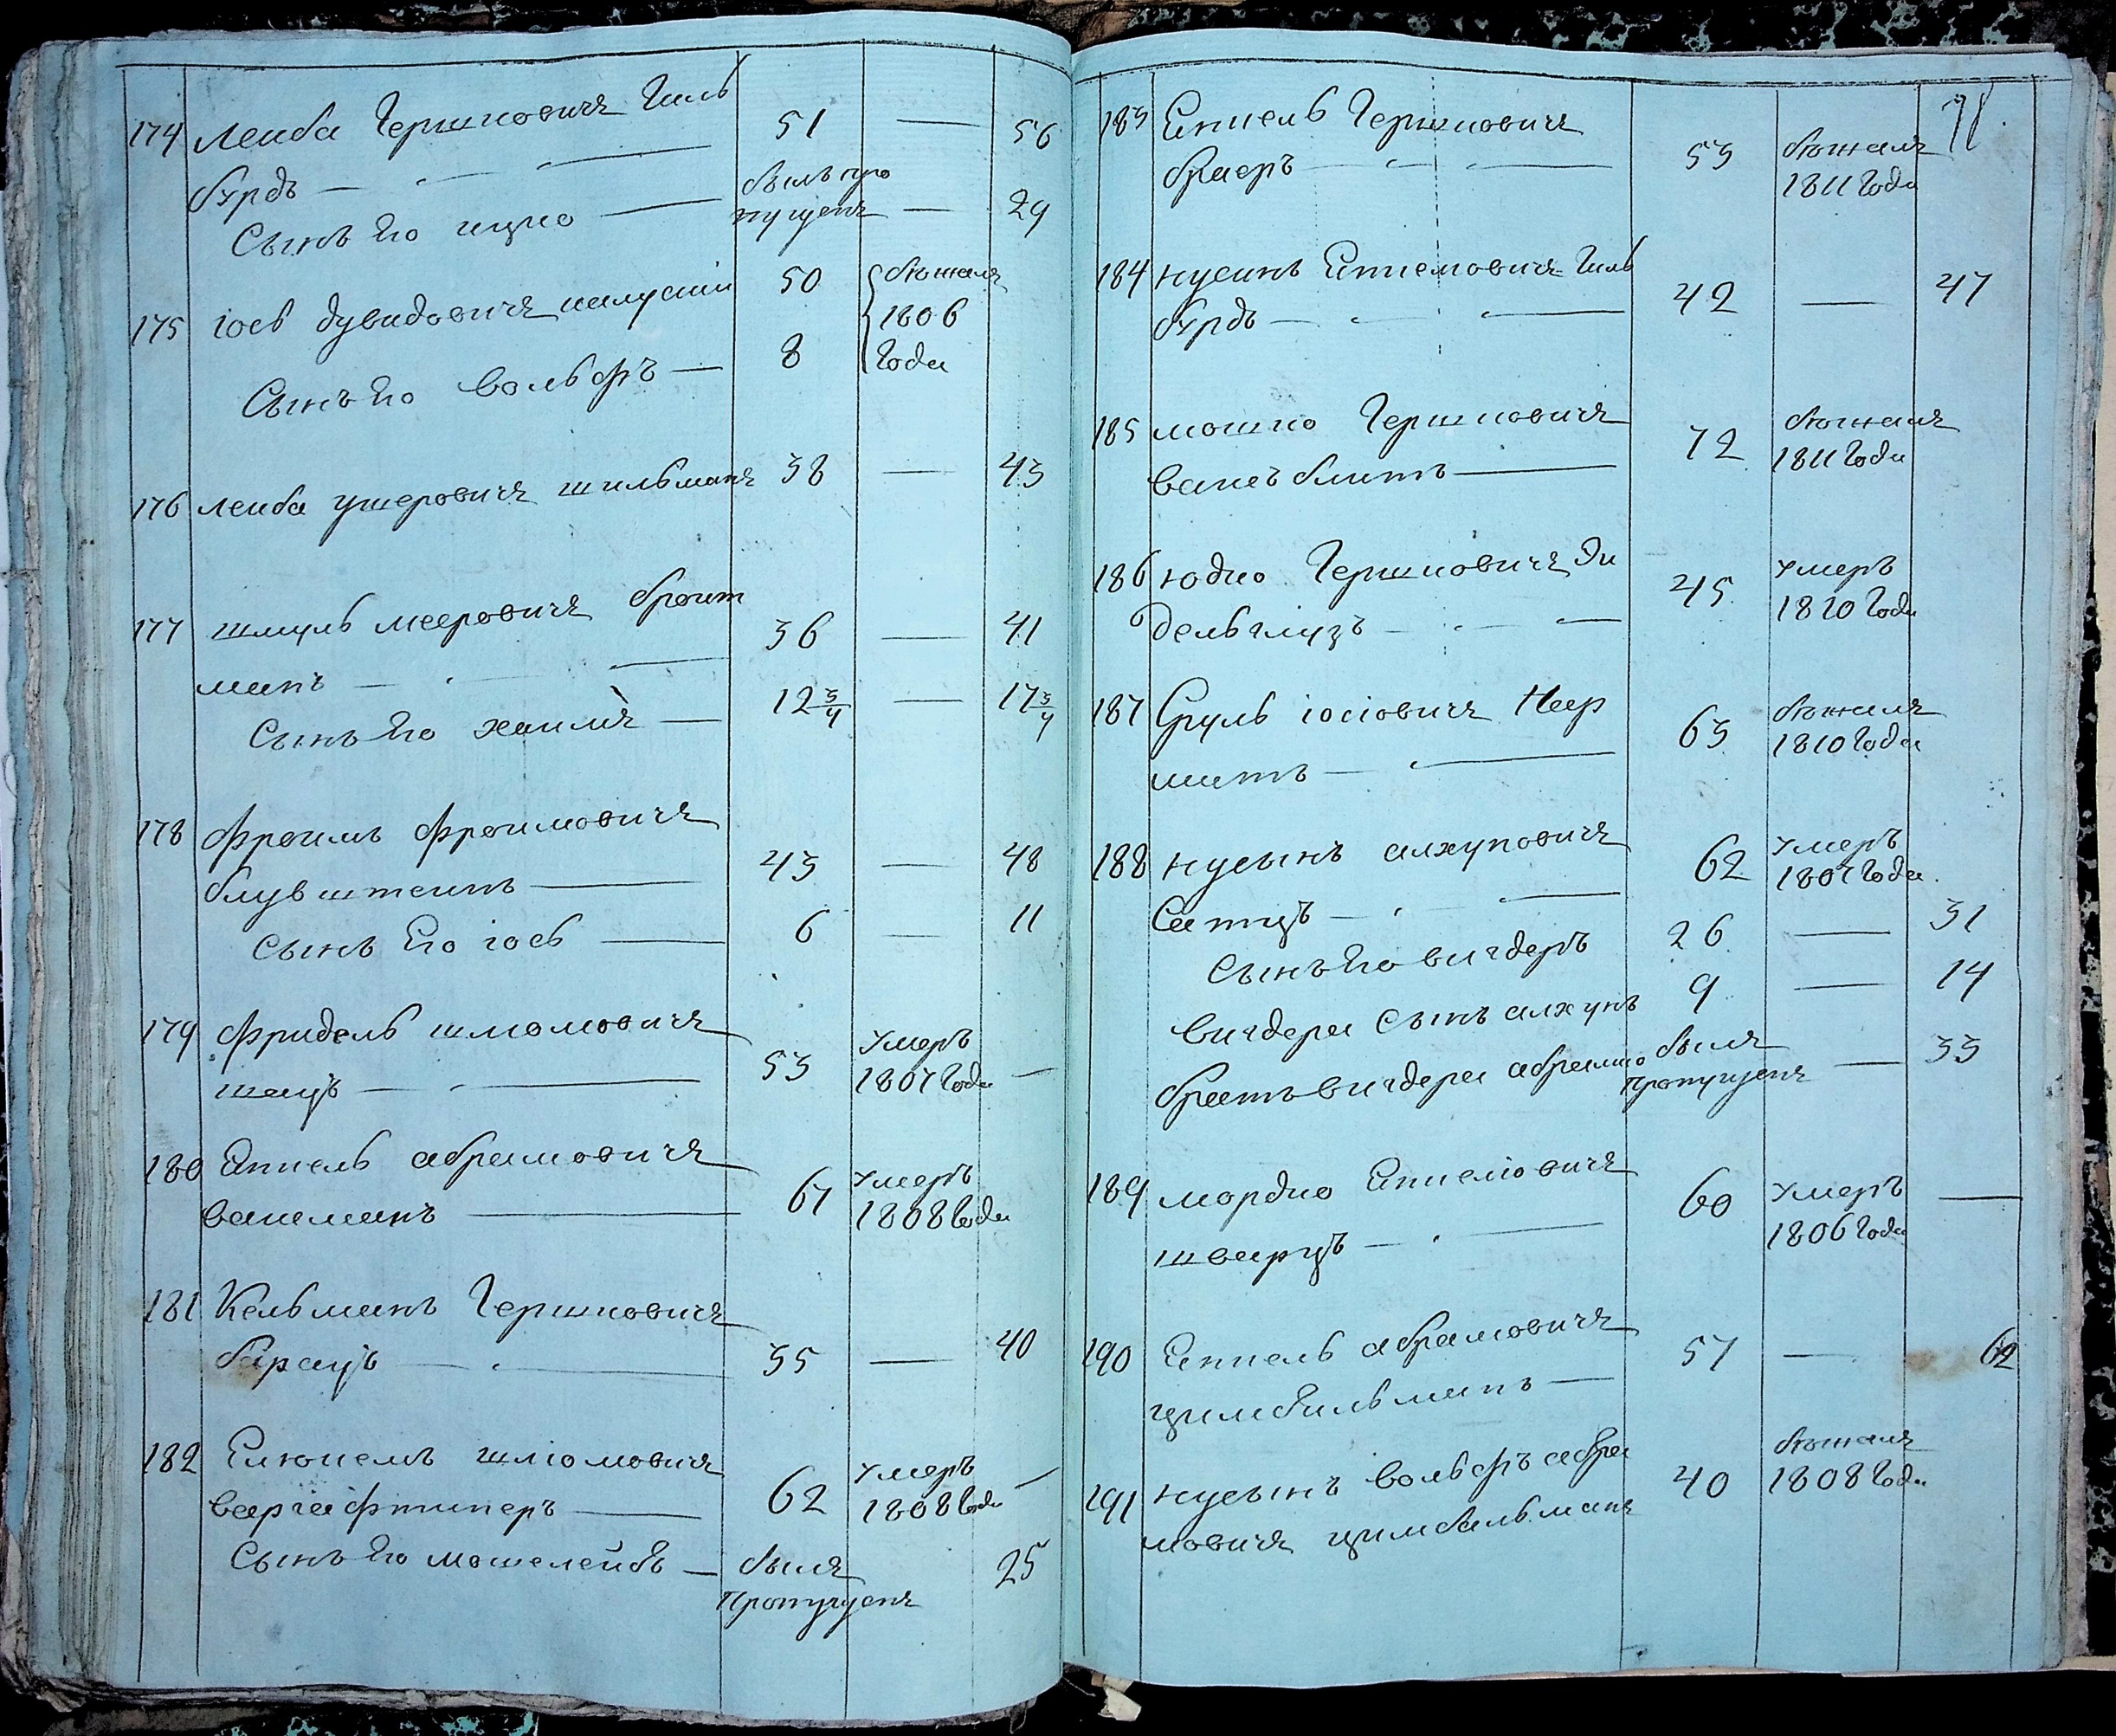 174 Леиба Гершковичъ Гиль 51 — 56
бурдъ —
Сынъ Его ицко — былъ про
пущенъ — 29
175 Іось дувидовичъ калускіи 50 бѣжалъ
1806
Года
Сынъ Его вольфъ — 8
176 Леиба ушеровичъ шильманъ 38 — 43
177 шмуль мееровичъ броит 36 — 41
манъ —
Сынъ Его хаимъ — 12 3/4 — 17 3/4
178 Фроимъ фроимовичъ
блувштеинъ — 43 — 48
Сынъ Его іось — 6 — 11
179 Фридель шломовичъ
шацъ — 53 Умеръ
1807 Года —
180 Янкель абрамовичъ
ваисманъ — 67 Умеръ
1808 Года
181 Кельманъ Гершковичъ
барацъ — 35 — 40
182 Елюкемъ шліомовичъ
варгафтикеръ — 62 Умеръ
1808 Года —
Сынъ Его мошелейбъ — былъ
пропущенъ 25
183 Янкель Гершковичъ
браеръ — 53 бѣжалъ
1811 Года
184 нусинъ Янкелювичъ Гиль
бурдъ — 42 — 47
185 мошко Гершковичъ
ваисблитъ — 72 бѣжалъ
1811 Года
186 юдко Гершковичъ Эи
дельглузъ — 45 Умеръ
1810 Года
187 Сруль іосіовичъ Кер
митъ — 63 бѣжалъ
1810 Года
188 нусынъ алхуновичъ 62 Умеръ
1807 Года
Сатцъ —
Сынъ Его вигдеръ 26 — 31
вигдера Сынъ алхунъ 9 — 14
братъ вигдера абрамко былъ
пропущенъ — 33
189 мордко Янкеліовичъ
шварцъ — 60 Умеръ
1806 Года —
190 Янкель абрамовичъ 57 — 62
цимбильманъ —
191 нусынъ вольфъ абра 40 бѣжалъ
1808 Года
мовичъ цимбальманъ